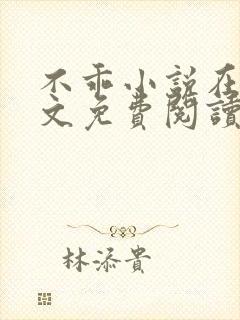 不乖小说在
文免費閱讀
林添貴